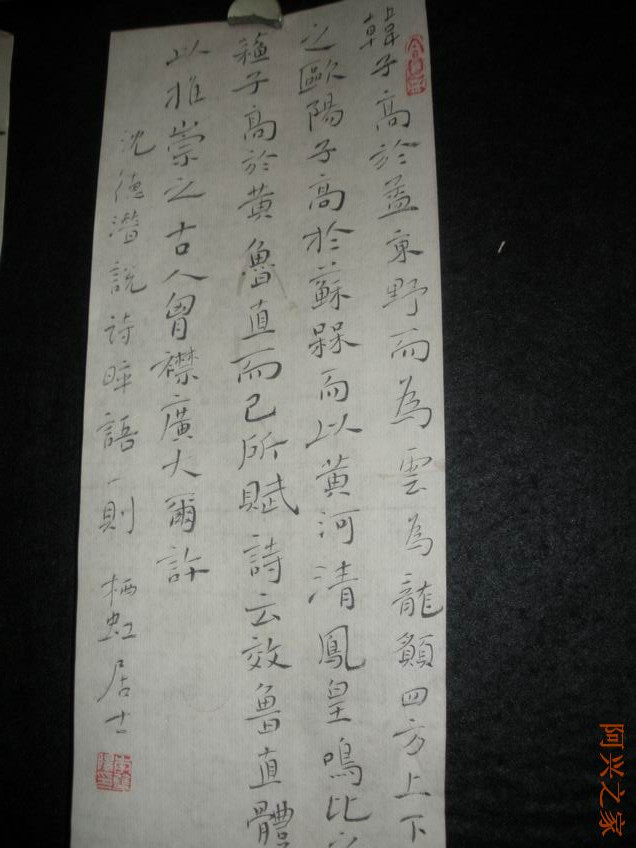 韓子高於孟東野而為雲為龍願四方上下
之歐陽子高於蘇槑而以黄河清鳳皇鳴比之
蘇子高於黄魯直而己所賦詩云效魯直體
以推崇之古人胷襟廣大爾許
沈德潛說詩晬語一則 栖虹居士
阿兴之家